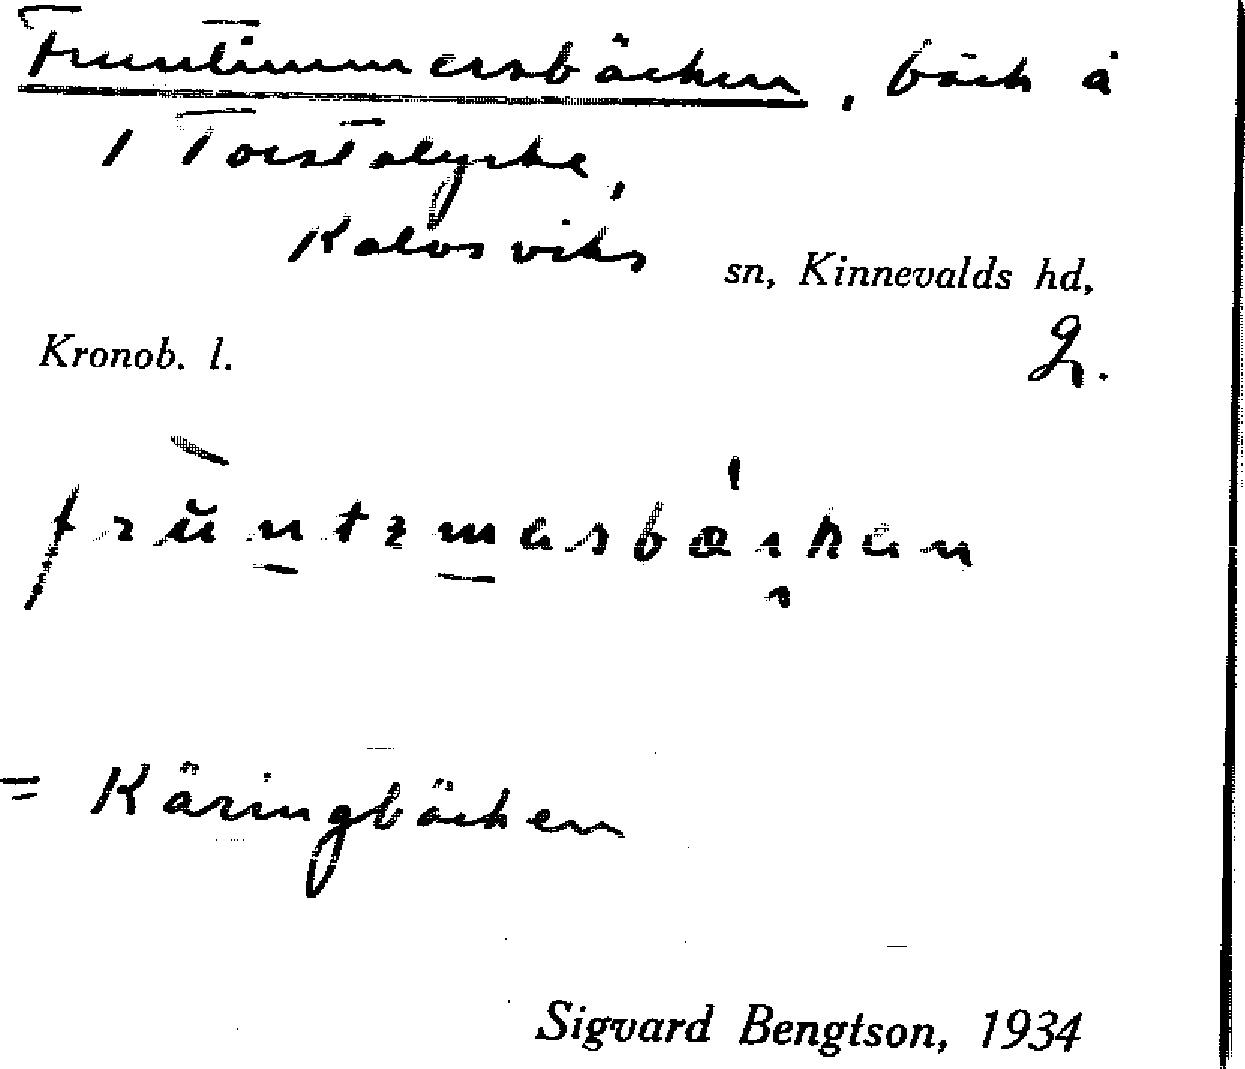 Fruntimmersbäcken, bäck å
1 Torstalycke,
Kalvsviks sn, Kinnevalds hd,
Kronob. l.
= Käringbäcken
Sigvard Bengtson, 1934